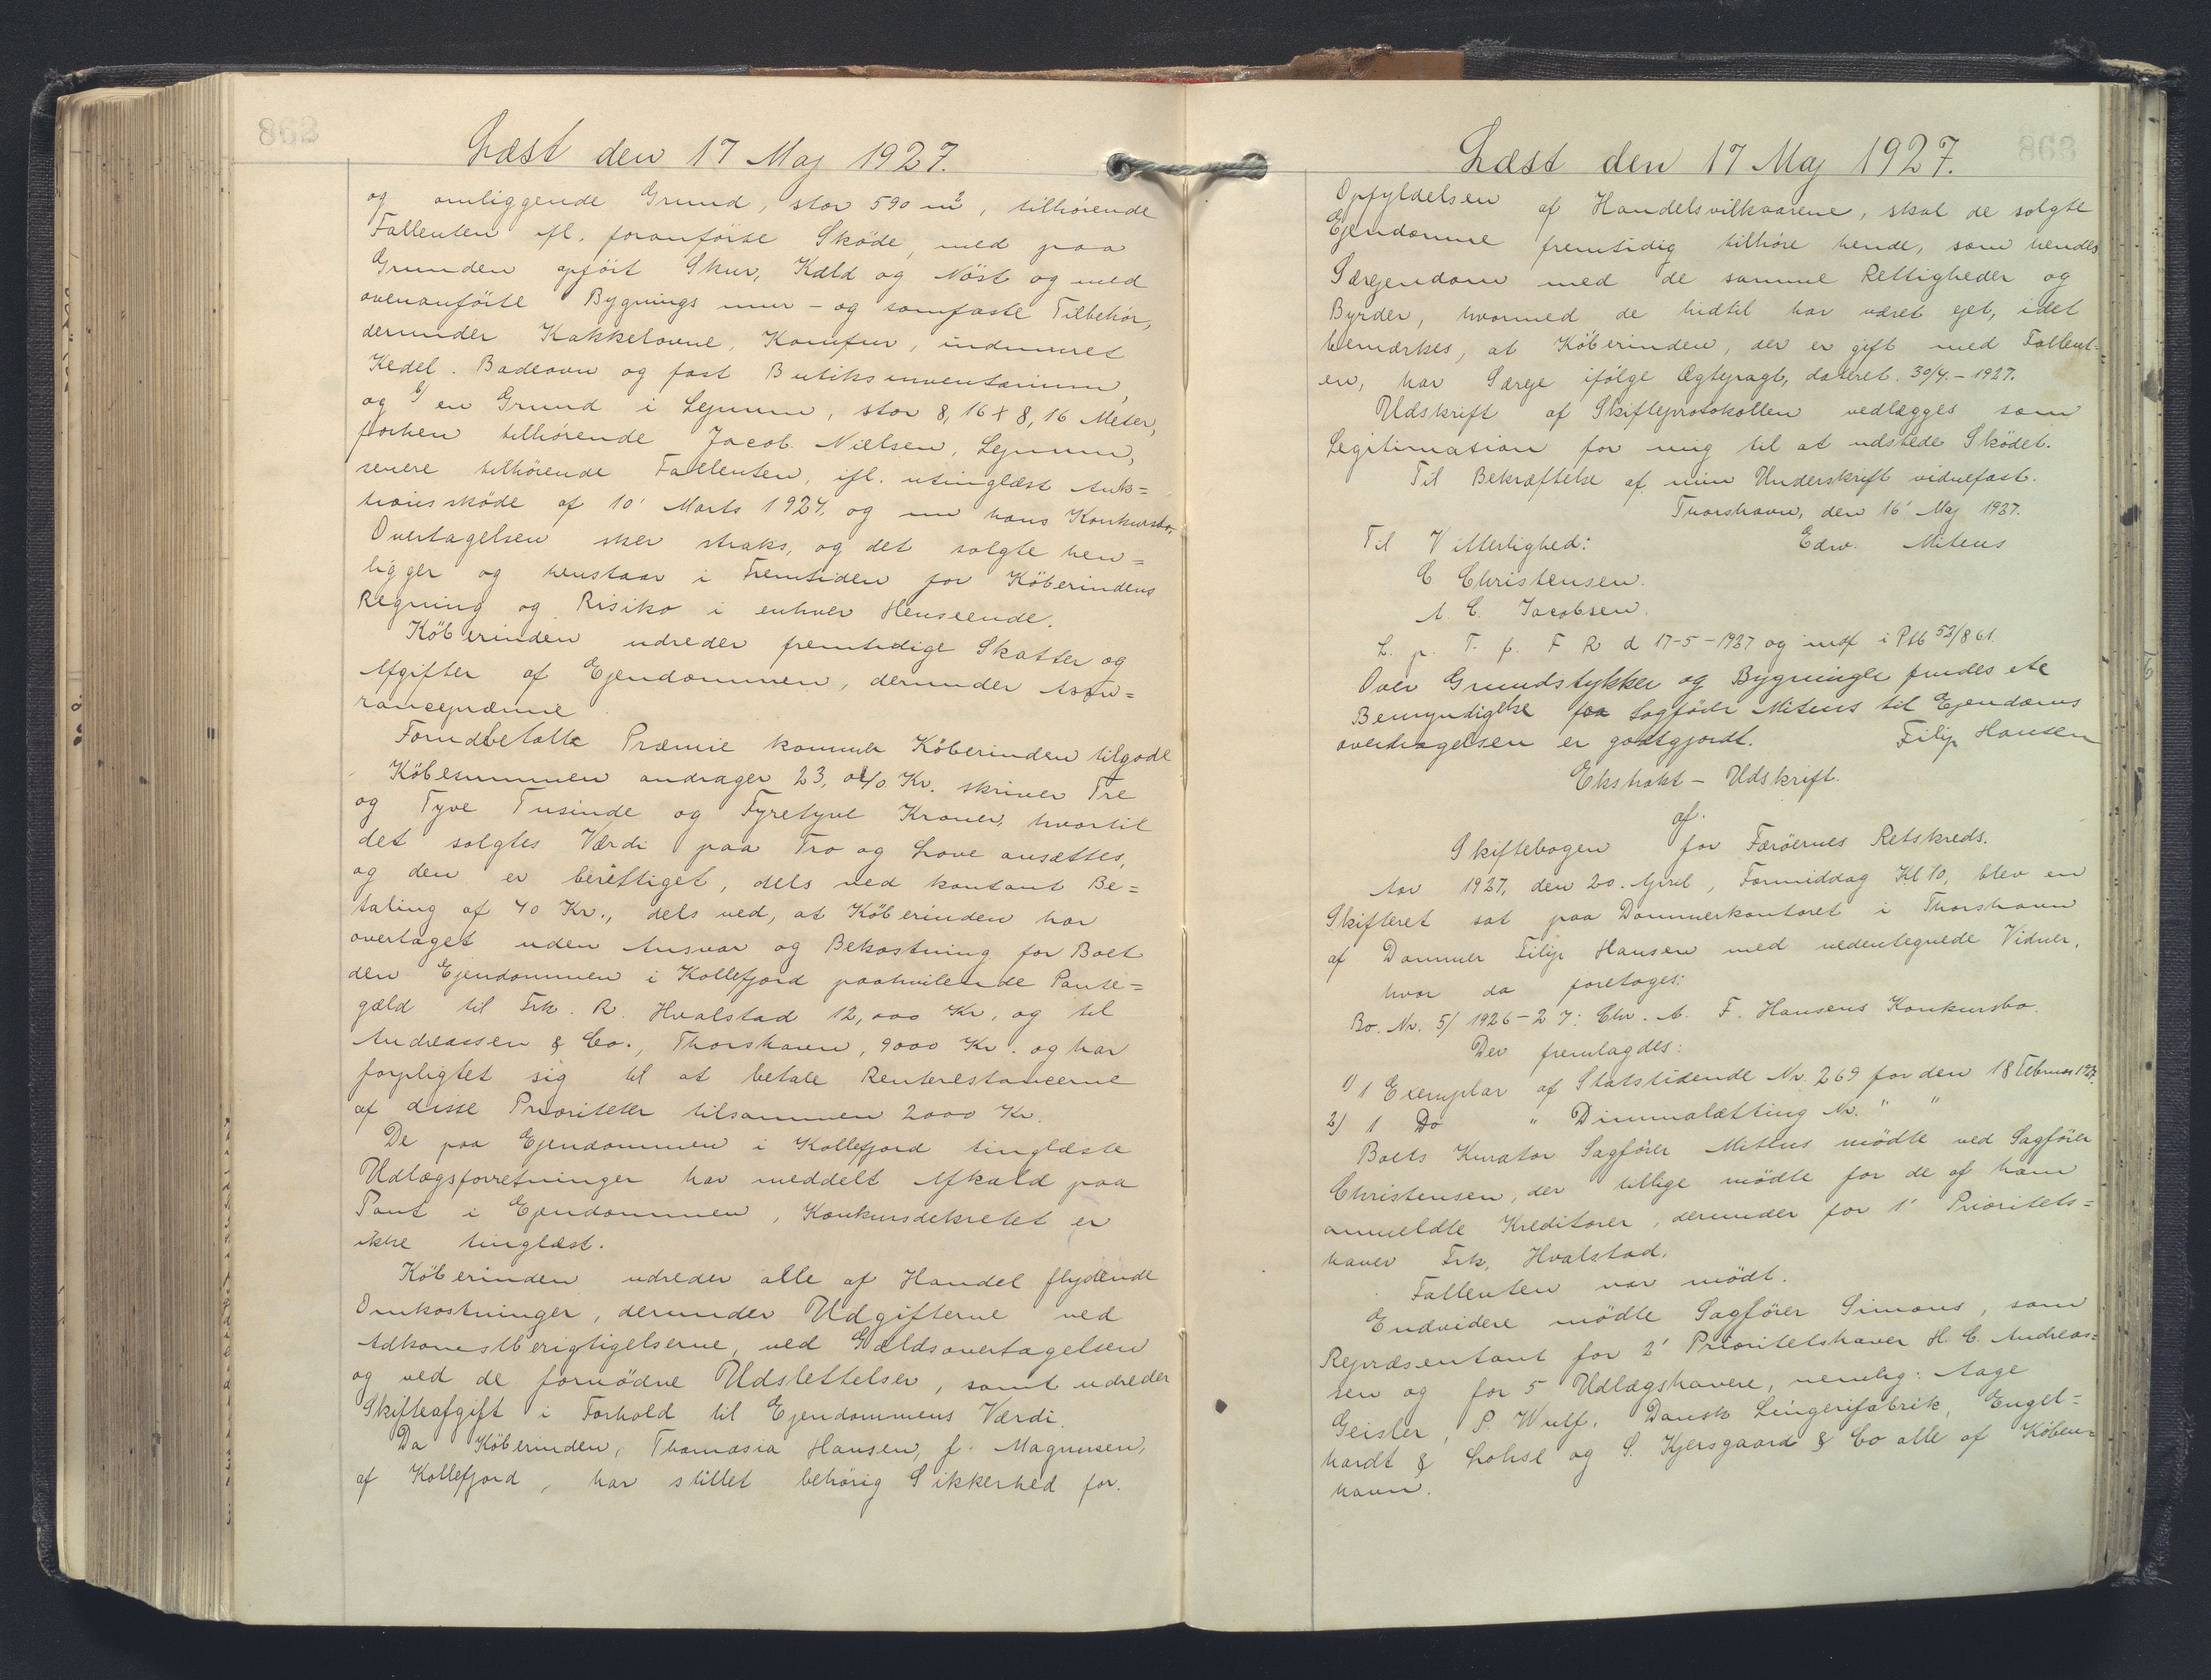 862
Læst den 17 Maj 1927.
og omliggende Grund, stor 590 m², tilhörende
Fallenten ifl. foranförte Sköde, med paa
Grunden opfört Skur, Kæld og Nöst og med
ovenanförte Bygnings mur- og sömfaste Tilbehör,
derunder Kakkelovne, Komfur, indmuret
Kedel. Badeovn og fast Butiksinventarium,
og en Grund i Lejnum, stor 8,16 x 8,16 Meter,
forhen tilhörende Jacob Nielsen, Lejnum,
senere tilhörende Fallenten, ifl. utinglæst Auk=
tionssköde af 10' Marts 1924, og nu hans Konkursbo,
Overtagelsen sker straks, og det solgte hen=
ligger og henstaar i Fremtiden for Köberindens
Regning og Risiko i enhver Henseende.
Köberinden udreder fremtidige Skatter og
Afgifter af Ejendommen, derunder Assu=
rancepræmie
Forudbetalte Præmie kommer Köberinden tilgode
Köbesummen andrager 23,040 Kr. skriver Tre
og Tyve Tusinde og Fyretyve Kroner, hvortil
det solgtes Værdi paa Tro og Love ansættes,
og den er berigtiget, dels ved kontant Be=
taling af 40 Kr., dels ved, at Köberinden har
overtaget uden Ansvar og Bekostning for Boet
den Ejendommen i Kollefjord paahvilende Pante=
gæld til Frk. R. Hvalstad 12,000 Kr, og til
Andreassen & Co., Thorshavn, 9000 Kr. og har
forpligtet sig til at betale Renterestancerne
af disse Prioriteter tilsammen 2000 Kr.
De paa Ejendommen i Kollefjord tinglæste
Udlægsforretninger har meddelt Afkald paa
Pant i Ejendommen, Konkursdekretet er
ikke tinglæst.
Köberinden udreder alle af Handel flydende
Omkostninger, derunder Udgifterne ved
Adkomstberigtigelserne, ved Gældsovertagelsen
og ved de fornödne Udslettelser, samt udreder
Skifteafgift i Forhold til Ejendommens Værdi.
Da Köberinden, Thomasia Hansen, f. Magnusen,
af Kollefjord, har stillet behörig Sikkerhed for
863
Læst den 17 Maj 1927.
Opfyldelsen af Handelsvilkaarene, skal de solgte
Ejendomme fremtidig tilhöre hende, som hendes
Særejendom med de samme Rettigheder og
Byrder, hvormed de hidtil har været ejet, idet
bemærkes, at Köberinden, der er gift med Fallent=
en, har Særeje ifölge Ægtepagt, dateret 30/4.-1927.
Udskrift af Skifteprotokollen vedlægges som
Legitimation for mig til at udstede Sködet.
Til Bekræftelse af min Underskrift vidnefast.
Thorshavn, den 16' Maj 1927.
Til Vitterlighed: Edw. Mitens
C Christensen.
A. C. Jacobsen.
L. p. T. f. F R d 17-5-1927 og indf i Ptb 52/861.
Over Grundstykker og Bygninger findes ete
Bemyndigelse for Sagförer Mitens til Ejendoms
overdragelsen er godtgjordt. Filip Hansen
Ekstrakt-Udskrift.
af
Skiftebogen for Færöernes Retskreds.
Aar 1927, den 20. April, Formiddag Kl 10, blev en
Skifteret sat paa Dommerkontoret i Thorshavn
af Dommer Filip Hansen med nedentegnede Vidner,
hvor da foretages:
Bo. Nr. 5/1926-27: Chr. A. F. Hansens Konkursbo.
Der fremlagdes:
1) 1 Exemplar af Statstidende Nr. 269 for den 18 Februar 1927.
2) 1 Do " Dimmalætting Nr. " "
Boets Kurator Sagförer Mitens mödte ved Sagförer
Christensen, der tillige mödte for de af ham
anmeldte Kreditorer, derunder for 1' Prioritets=
haver Frk. Hvalstad.
Fallenten var mödt.
Endvidere mödte Sagförer Simons, som
Repræsentant for 2' Prioritetshaver H. C. Andreas=
sen og for 5 Udlægshavere, nemlig: Aage
Geisler, P. Wulf, Dansk Lingerifabrik, Engel=
hardt & Lohse og S. Kjersgaard & Co alle af Köben=
havn.